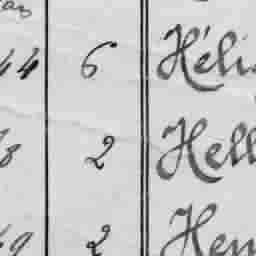 44 6 Héli
8 2 Hell
49 2 Hen